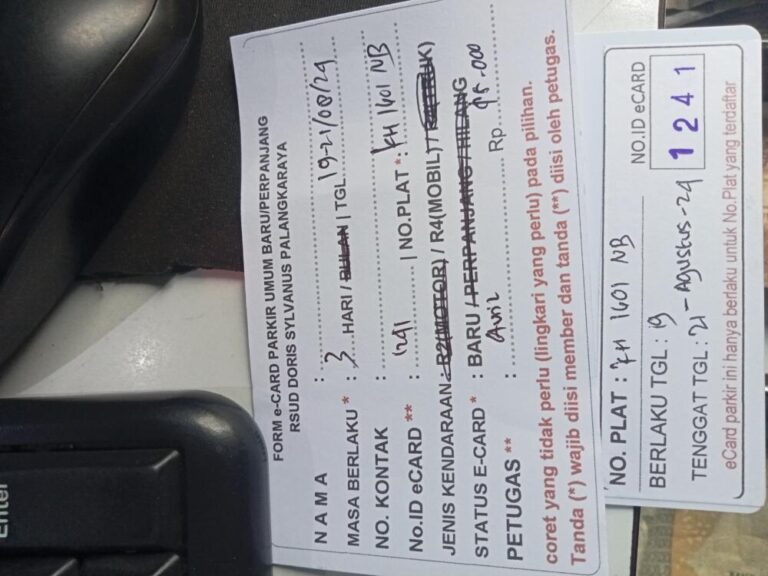 FORM e-CARD PARKIR UMUM BARU/PERPANJANG
RSUD DORIS SYLVANUS PALANGKARAYA
NAMA :
MASA BERLAKU * : 3 HARI / BULAN | TGL. 19-21/08/24
NO. KONTAK :
No.ID eCARD ** : 1241 | NO.PLAT *: KH 1401 NB
JENIS KENDARAAN : R2(MOTOR) / R4(MOBIL) / R6(TRUK)
STATUS E-CARD * : BARU / PERPANJANG / HILANG
PETUGAS ** : Avil Rp 45.000
coret yang tidak perlu (lingkari yang perlu) pada pilihan.
Tanda (*) wajib diisi member dan tanda (**) diisi oleh petugas.
NO. PLAT : KH 1401 NB
NO.ID eCARD
1241
BERLAKU TGL : 19
TENGGAT TGL : 21 - Agustus - 24
eCard parkir ini hanya berlaku untuk No.Plat yang terdaftar
Enter